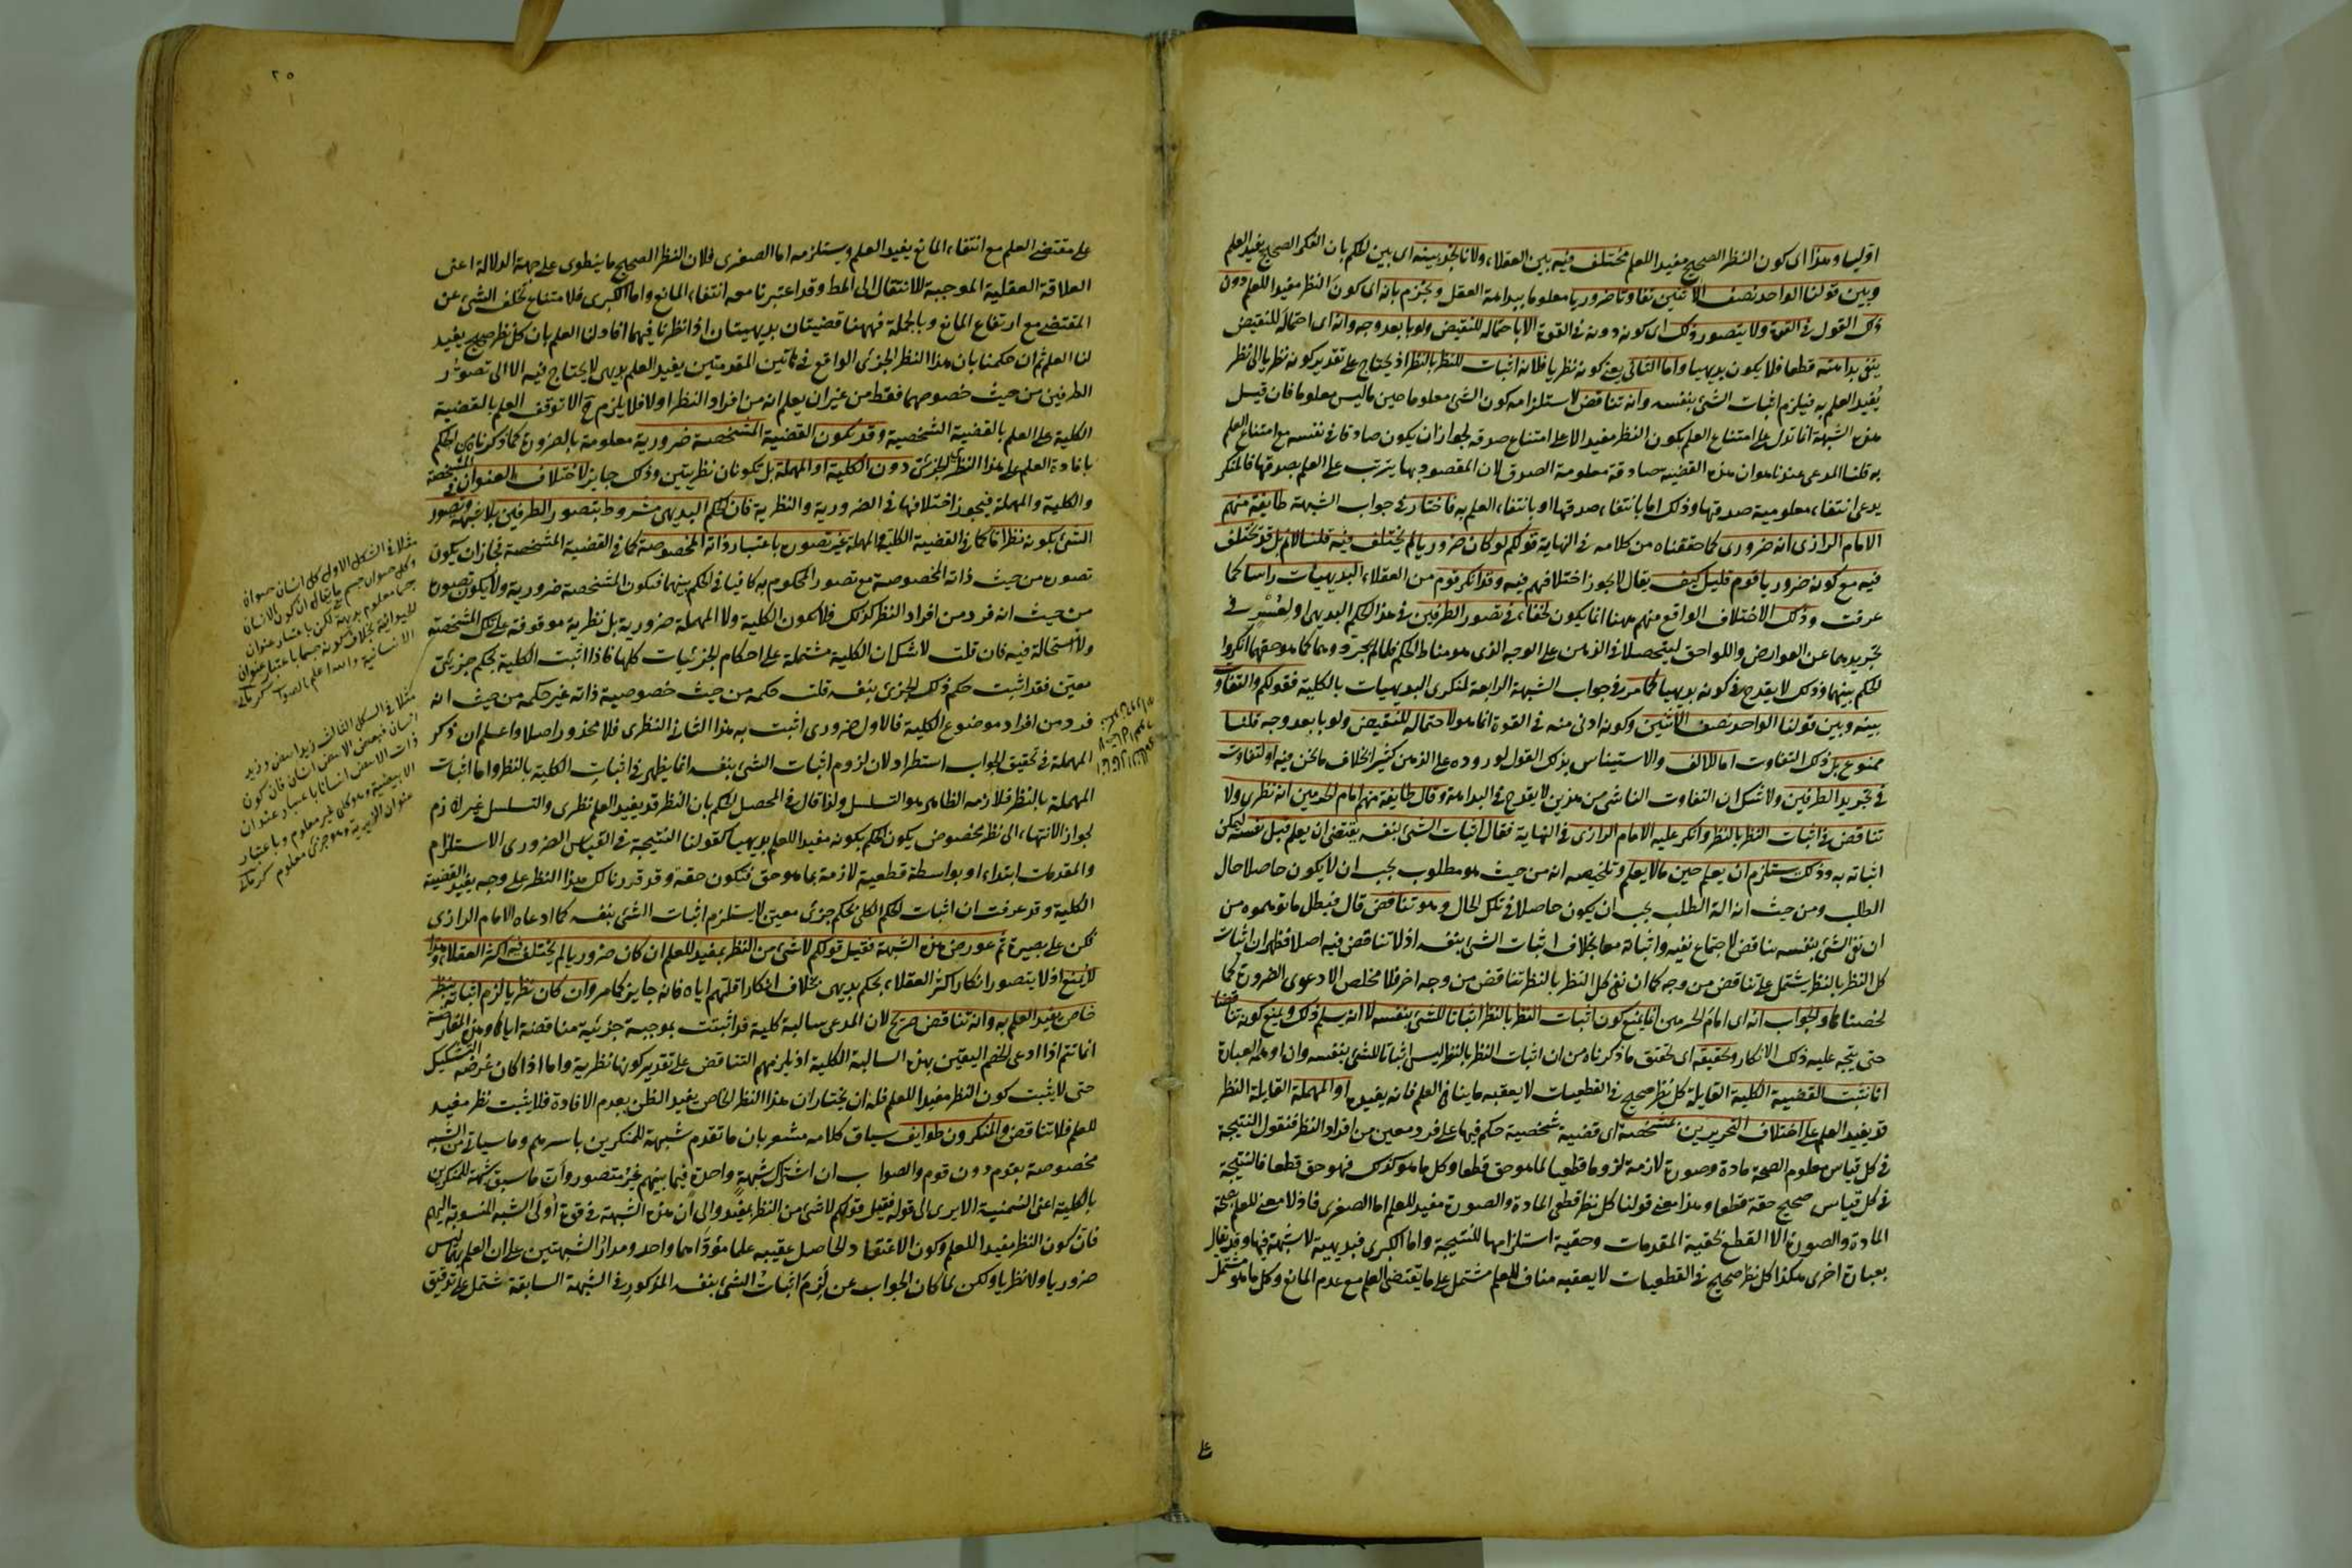 اوليا وهذا اى كون النظر الصحيح مفيدا للعلم مختلف فيه بين العقلاء ولانا نجد بينه اى بين الحكم بان الفكر الصحيح يفيد العلم
وبين قولنا الواحد نصف الاثنين تفاوتا ضروريا معلوما ببداهة العقل ونجزم بانه اى كون النظر مفيدا للعلم دون
ذلك القول فى القوة ولا يتصور ذلك اى كونه دونه فى القوة الا باحتماله للنقيض ولو بابعد وجه وانه اى احتماله للنقيض
ينفى بداهته قطعا فلا يكون بديهيا واما الثانى يعنى كونه نظريا فلانه اثبات للنظر بالنظر اذ يحتاج على تقدير كونه نظريا الى نظر
يفيد العلم به فيلزم اثبات الشئ بنفسه وانه تناقض لاستلزامه كون الشئ معلوما حين ما ليس معلوما فان قيل
هذه الشبهة انما تدل على امتناع العلم بكون النظر مفيدا لا على امتناع صدقه لجواز ان يكون صادقا فى نفسه مع امتناع العلم
به قلنا المدعى عندنا هو ان هذه القضية صادقة معلومة الصدق لان المقصود بها يترتب على العلم بصدقها فالمنكر
يدعى انتفاء معلومية صدقها وذلك اما بانتفاء صدقها او بانتفاء العلم به فاختار فى جواب الشبهة طايفة منهم
الامام الرازى انه ضرورى كما حققناه من كلامه فى النهاية قولكم لو كان ضروريا لم يختلف فيه قلنا لا نم بل قد يختلف
فيه مع كونه ضروريا قوم قليل كيف يقال لا يجوز اختلافهم فيه وقد انكر قوم من العقلاء البديهيات راسا كما
عرفت وذلك الاختلاف الواقع منهم ههنا انما يكون لخفاء فى تصور الطرفين فى هذا الحكم البديهى او لعسر فى
تجريدهما عن العوارض واللواحق ليتحصلا فى الذهن على الوجه الذى هو مناط الحكم فلما لم يجرد وهما كما هو حقهما انكروا
الحكم بينهما وذلك لا يقدح فى كونه بديهيا كما مر فى جواب الشبهة الرابعة لمنكرى البديهيات بالكلية فقولكم والتفاوت
بينه وبين قولنا الواحد نصف الاثنين وكونه ادنى منه فى القوة انما هو لاحتماله للنقيض ولو بابعد وجه قلنا
ممنوع بل ذلك التفاوت اما للالف والاستيناس بذلك القول لوروده على الذهن كثيرا بخلاف ما نحن فيه او لتفاوت
فى تجريد الطرفين ولا شك ان التفاوت الناشى من هذين لا يقدح فى البداهة وقال طايفة منهم امام الحرمين انه نظرى ولا
تناقض فى اثبات النظر بالنظر وانكر عليه الامام الرازى فى النهاية فقال اثبات الشئ بنفسه يقتضى ان يعلم قبل نفسه ليمكن
اثباته به وذلك يستلزم ان يعلم حين ما لا يعلم وتلخيصه انه من حيث هو مطلوب يجب ان لا يكون حاصلا حال
الطلب ومن حيث انه آلة الطلب يجب ان يكون حاصلا فى تلك الحال وهو تناقض قال فبطل ما توهموه من
ان نفى الشئ بنفسه تناقض لاجتماع نفيه واثباته معا بخلاف اثبات الشئ بنفسه اذ لا تناقض فيه اصلا فظهر ان اثبات
كل النظر بالنظر يشتمل على تناقض من وجه كما ان نفى كل النظر بالنظر تناقض من وجه اخر فلا مخلص الا دعوى الضرورة كما
لخصناها والجواب انه اى امام الحرمين انما يمنع كون اثبات النظر بالنظر اثباتا للشئ بنفسه لا انه يسلم ذلك ويمنع كونه تناقضا
حتى يتجه عليه ذلك الانكار وتحقيقه اى تحقق ما ذكرناه من ان اثبات النظر بالنظر ليس اثباتا للشئ بنفسه وان اوهمه العبارة
انا نثبت القضية الكلية القايلة كل نظر صحيح فى القطعيات لا يعقبه ما ينافى العلم فانه يفيده او المهملة القايلة النظر
قد يفيد العلم على اختلاف التحريرين بمشخصة اى قضية شخصية حكم فيها على فرد معين من افراد النظر فنقول النتيجة
فى كل قياس معلوم الصحة مادة وصورة لازمة لزوما قطعيا لما هو حق قطعا وكل ما هو كذلك فهو حق قطعا فالنتيجة
فى كل قياس صحيح حقة قطعا وهذا معنى قولنا كل نظر قطعى المادة والصورة مفيد للعلم اما الصغرى فاذ لا معنى للعلم بصحة
المادة والصورة الا القطع بحقية المقدمات وحقية استلزامها للنتيجة واما الكبرى فبديهية لا شبهة فيها وقد يقال
بعبارة اخرى هكذا كل نظر صحيح فى القطعيات لا يعقبه مناف للعلم مشتمل على ما يقتضى العلم مع عدم المانع وكل ما هو مشتمل
على
٢٥
على مقتضى العلم مع انتفاء المانع يفيد العلم ويستلزمه اما الصغرى فلان النظر الصحيح ما ينطوى على جهة الدلالة اعنى
العلاقة العقلية الموجبة للانتقال الى المط وقد اعتبرنا معه انتفاء المانع واما الكبرى فلامتناع تخلف الشئ عن
المقتضى مع ارتفاع المانع وبالجملة فههنا قضيتان بديهيتان اذا نظرنا فيهما افاد لنا العلم بان كل نظر صحيح يفيد
لنا العلم ثم ان حكمنا بان هذا النظر الجزئى الواقع فى هاتين المقدمتين يفيد العلم بديهى لا يحتاج فيه الا الى تصور
الطرفين من حيث خصوصهما فقط من غير ان يعلم انه من افراد النظر اولا فلا يلزم ح الا توقف العلم بالقضية
الكلية على العلم بالقضية الشخصية وقد تكون القضية المشخصة ضرورية معلومة بالضرورة كما ذكرناه من الحكم
بافادة العلم على هذا النظر الجزئى دون الكلية او المهملة بل تكونان نظريتين وذلك جايز لاختلاف العنوان فى المشخصة
والكلية والمهملة فيجوز اختلافها فى الضرورية والنظرية فان الحكم البديهى مشروط بتصور الطرفين بلا شبهة وتصور
الشئ بكونه نظرا ما كما فى القضية الكلية والمهملة غير تصوره باعتبار ذاته المخصوصة كما فى القضية المشخصة فجاز ان يكون
تصوره من حيث ذاته المخصوصة مع تصور المحكوم به كافيا فى الحكم بينهما فتكون المشخصة ضرورية ولا يكون تصوره
من حيث انه فرد من افراد النظر كذلك فلا تكون الكلية ولا المهملة ضرورية بل نظرية موقوفة على تلك المشخصة
ولا استحالة فيه فان قلت لا شك ان الكلية مشتملة على احكام الجزئيات كلها فاذا اثبت الكلية بحكم جزئى
معين فقد اثبت حكم ذلك الجزئى بنفسه قلت حكمه من حيث خصوصية ذاته غير حكمه من حيث انه
فرد من افراد موضوع الكلية فالاول ضرورى اثبت به هذا الثانى النظرى فلا محذور اصلا واعلم ان ذكر
المهملة فى تحقيق الجواب استطراد لان لزوم اثبات الشئ بنفسه انما يظهر فى اثبات الكلية بالنظر واما اثبات
المهملة بالنظر فلازمه الظاهر هو التسلسل ولذا قال فى المحصل الحكم بان النظر قد يفيد العلم نظرى والتسلسل غير لازم
لجواز الانتهاء الى نظر مخصوص يكون الحكم بكونه مفيدا للعلم بديهيا كقولنا النتيجة فى القياس الضرورى الاستلزام
والمقدمات ابتداء او بواسطة قطعية لازمة بما هو حق فتكون حقة وقد قررنا لك هذا النظر على وجه يفيد القضية
الكلية وقد عرفت ان اثبات الحكم الكلى بحكم جزئى معين لا يستلزم اثبات الشئ بنفسه كما ادعاه الامام الرازى
فكن على بصيرة ثم عورض هذه الشبهة فقيل قولكم لا شئ من النظر بمفيد للعلم ان كان ضروريا لم يختلف فيه اكثر العقلاء وهذا
لا يمنع اذ لا يتصور انكار اكثر العقلاء بحكم بديهى بخلاف انكار اقلهم اياه فانه جايز كما مر وان كان نظريا لزم اثباته بنظر
خاص يفيد العلم به وانه تناقض صريح لان المدعى سالبة كلية قد اثبتت بموجبة جزئية مناقضة اياها وهذه المعارضة
انما تتم اذا ادعى الخصم اليقين بهذه السالبة الكلية اذ يلزمهم التناقض على تقدير كونها نظرية واما اذا كان غرضه التشكيك
حتى لا يثبت كون النظر مفيدا للعلم فله ان يختار ان هذا النظر الخاص يفيد الظن بعدم الافادة فلا يثبت نظر مفيد
للعلم فلا تناقض والمنكرون طوايف سياق كلامه مشعر بان ما تقدم شبهة للمنكرين باسرهم وما سياتى من الشبه
مخصوصة بقوم دون قوم والصواب ان اشتراك شبهة واحدة فيما بينهم غير متصور وان ما سبق شبهة للمنكرين
بالكلية اعنى السمنية الا يرى الى قوله فقيل قولكم لا شئ من النظر بمفيد والى ان هذه الشبهة فى قوة اولى الشبه المنسوبة اليهم
فان كون النظر مفيدا للعلم وكون الاعتقاد الحاصل عقيبه علما مؤداهما واحد ومدار الشبهتين على ان العلم بهما ليس
ضروريا ولا نظريا ولكن لما كان الجواب عن لزوم اثبات الشئ بنفسه المذكور فى الشبهة السابقة شتمل على تدقيق
مثلا فى الشكل الاول كل انسان حيوان
وكل حيوان جسم
الانسانية والله اعلم بالصواب
مثلا فى الشكل الثالث زيد ابيض وزيد
انسان فبعض الابيض انسان فان كون
ذات الابيض انسانا باعتبار عنوان
الابيضية وهو كلى غير معلوم وباعتبار
عنوان الزيدية وهو جزئى معلوم